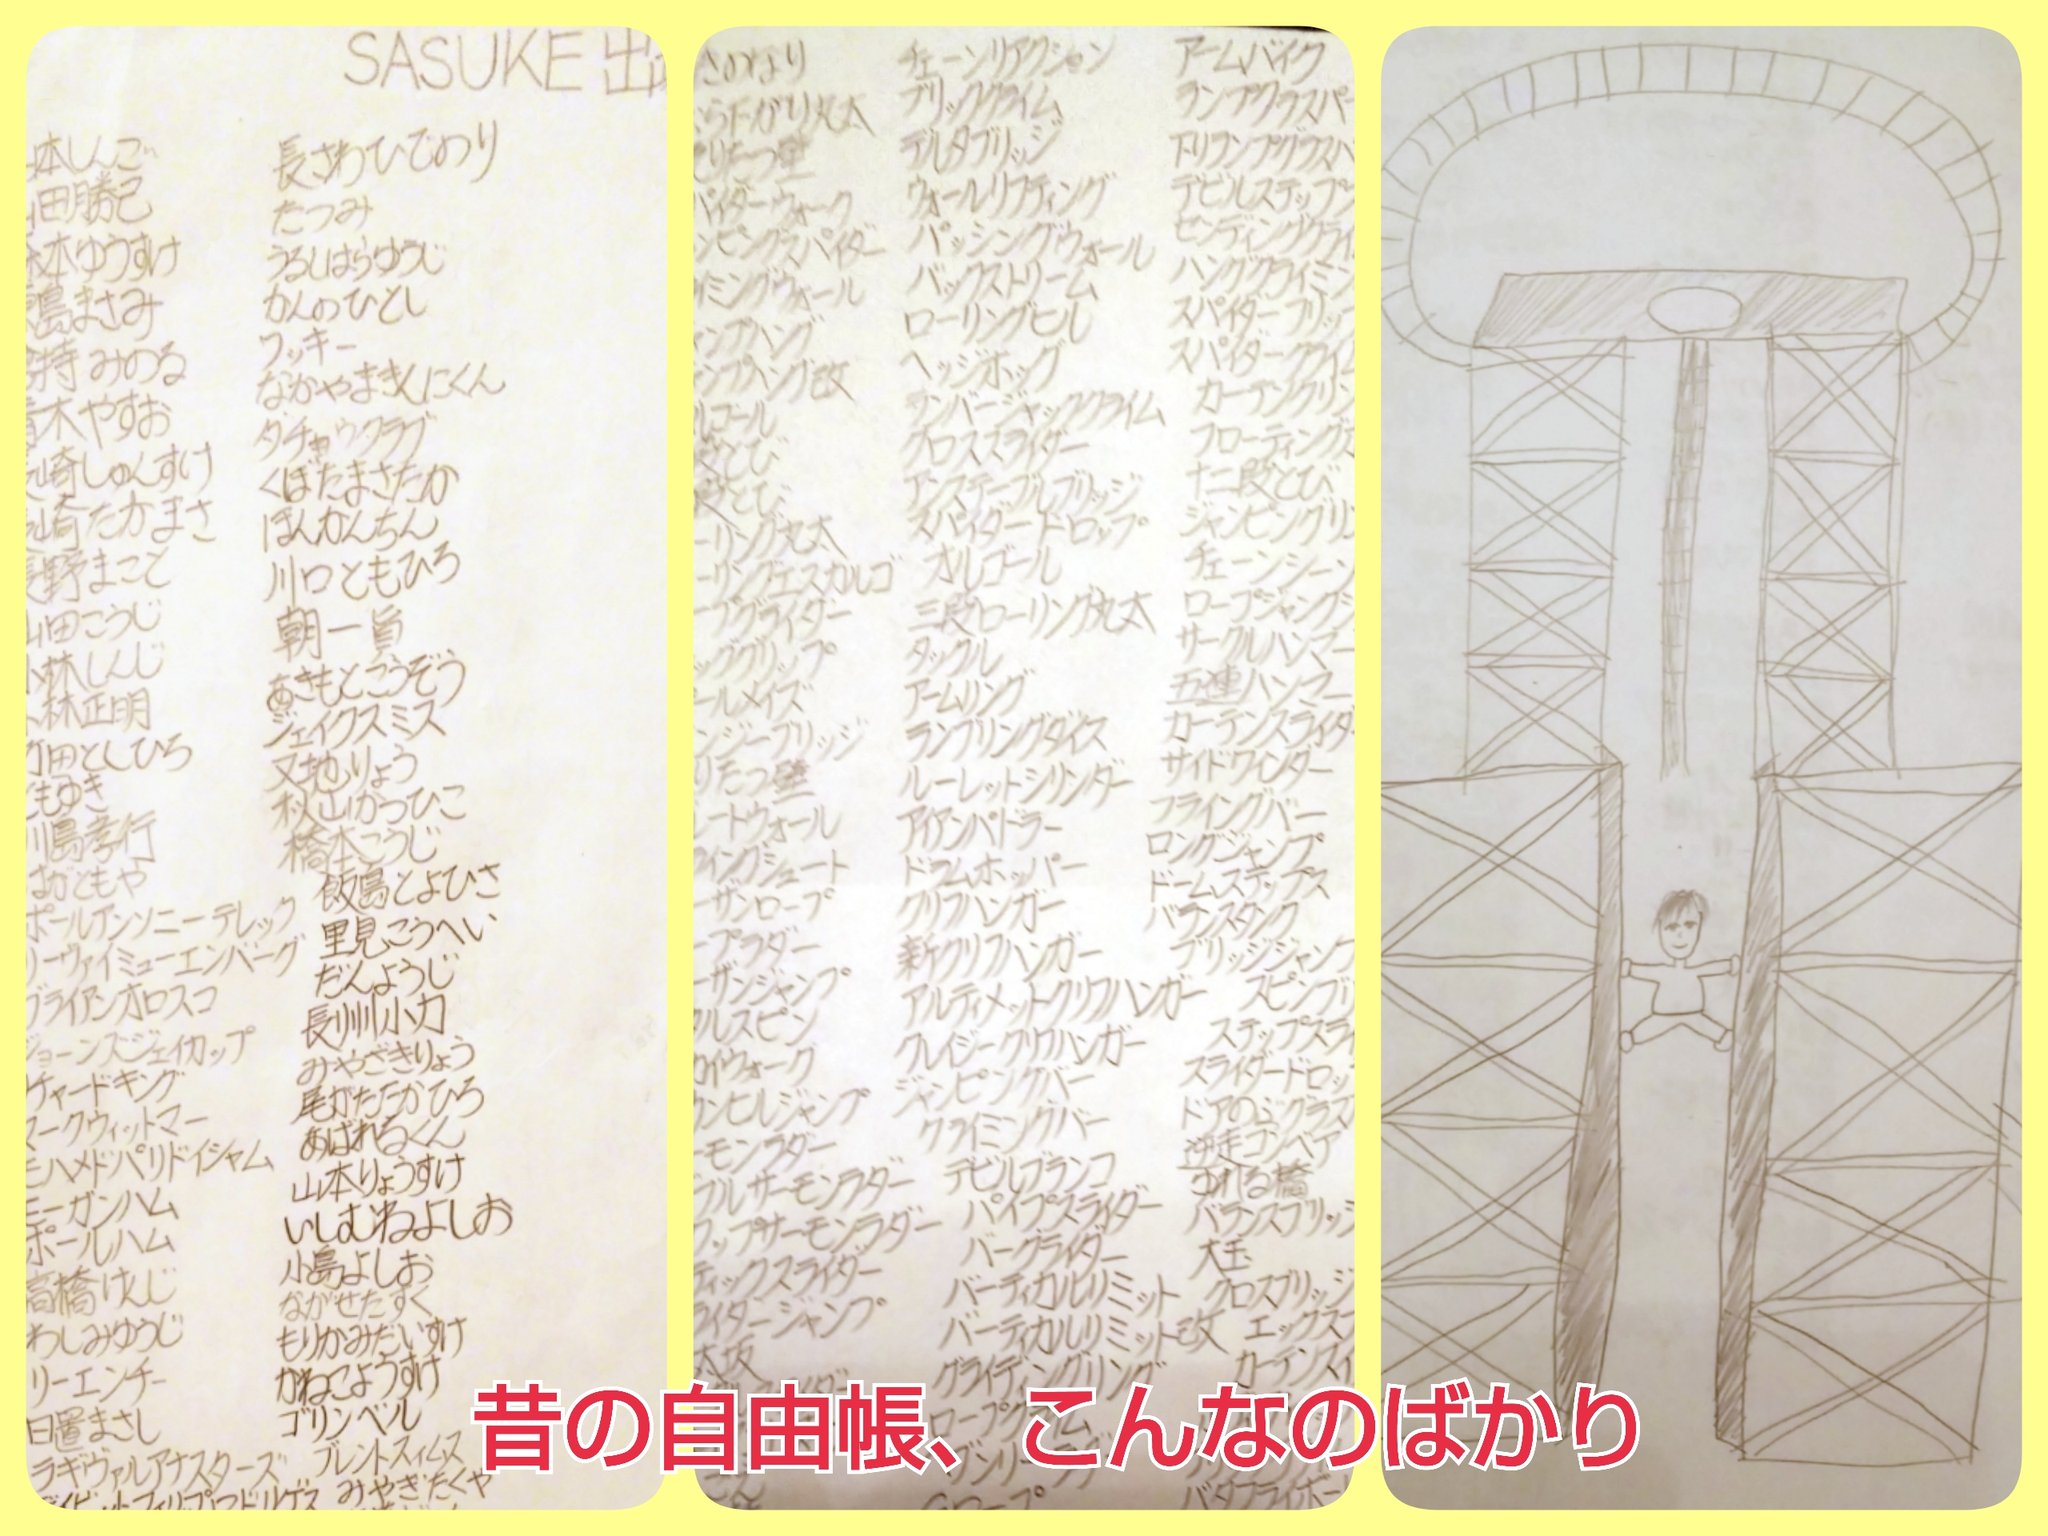 SASUKE 出
本しんご
山田勝己
本ゆうすけ
島まさみ
持みのる
青木やすお
崎しゅんすけ
山崎たかまさ
長野まこと
山田こうじ
小林しんじ
小林正明
竹田としひろ
ともゆき
川島孝行
はがともや
ポールアンソニーテレック
リーヴァイミューエンバーグ
ブライアンオロスコ
ジョーンズジェイカップ
チャードキング
マークウィットマー
モハメドパリドイシャム
モーガンハム
ポールハム
高橋けんじ
わしみゆうじ
リーエンチー
日置まさし
ラギヴァルアナスターズ
長さわひでのり
たつみ
うるしはらゆうじ
かんのひとし
ワッキー
なかやまきんにくん
ダチョウクラブ
くぼたまさたか
ほんかんちん
川口ともひろ
朝一
あきもとこうぞう
ジェイクスミス
又地りょう
秋山かつひこ
橋本こうじ
飯島とよひさ
里見こうへい
だんようじ
長州小力
みやざきりょう
尾がたたかひろ
あばれるくん
山本りょうすけ
いしむねよしお
小島よしお
ながせたすく
もりかみだいすけ
かねこようすけ
ゴリンベル
ブレントスティムス
みやぎたくや
さかのぼり
ぶら下がり丸太
そりたつ壁
パイダーウォーク
ンピングスパイダー
イミングウォール
ンプハング
ンプハング改
ルゴール
段とび
段とび
ーリング丸太
ーリングエスカルゴ
ープグライダー
ッググリップ
ールメイズ
ンジーブリッジ
りたつ壁
レートウォール
ィングシュート
ーザンロープ
ープラダー
ーザンジャンプ
ルスピン
カイウォーク
ウンヒルジャンプ
ーモンラダー
ブルサーモンラダー
ップサーモンラダー
ティックスライダー
ライダージャンプ
大坂
チェーンリアクション
ブリッククライム
デルタブリッジ
ウォールリフティング
パッシングウォール
バックストリーム
ローリングヒル
ヘッジホッグ
ランバージャッククライム
クロススライダー
アンステーブルブリッジ
スパイダードロップ
オルゴール
三段ローリング丸太
タックル
アームリング
ランブリングダイス
ルーレットシリンダー
アイアンパドラー
ドラムホッパー
クリフハンガー
新クリフハンガー
アルティメットクリフハンガー
クレイジークリフハンガー
ジャンピングバー
クライミングバー
デビルブランコ
パイプスライダー
バーグライダー
バーティカルリミット
バーティカルリミット改
グライディングリング
ロープクライム
Gロープ
アームバイク
ランプグラスパー
トリランプグラスパ
デビルステップ
センディングクライ
ハングクライミン
スパイダーフリッ
スパイダークライム
カーテンクリン
フローティング
十二段とび
ジャンピングリン
チェーンシーソ
ロープジャングシ
サークルハンマー
五連ハンマー
カーテンスライダ
サイドワインダー
フライングバー
ロングジャンプ
ドームステップス
バランスタンク
ブリッジジャンプ
スピンブリ
ステップスライ
スライダードロッ
ドアのぶグラス
逆走コンベア
ゆれる橋
バランスブリッジ
大玉
クロスブリッジ
エックスブ
カーテンスイ
バタフライボー
昔の自由帳、こんなのばかり